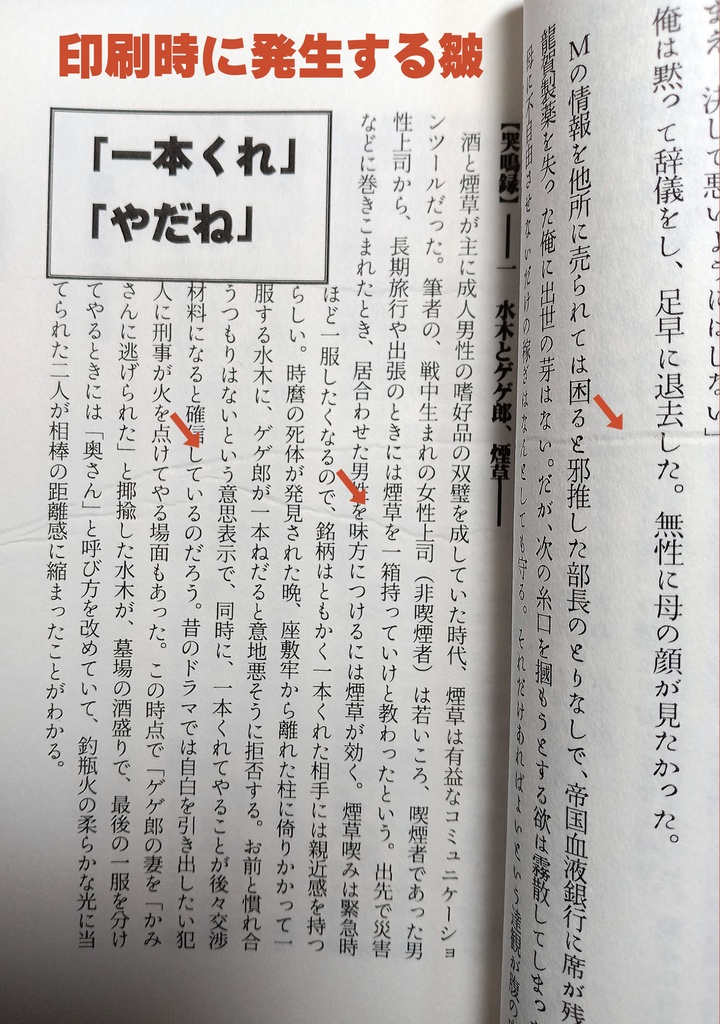 印刷時に発生する皺
まえ、決して悪いようにはしない」
俺は黙って辞儀をし、足早に退去した。無性に母の顔が見たかった。
Mの情報を他所に売られては困ると邪推した部長のとりなしで、帝国血液銀行に席が残
龍賀製薬を失った俺に出世の芽はない。だが、次の糸口を摑もうとする欲は霧散してしまっ
母に不自由させないだけの稼ぎはなんとしても守る。それだけあればよいという達観が腹の
【哭鳴録】――一　水木とゲゲ郎、煙草――
酒と煙草が主に成人男性の嗜好品の双璧を成していた時代、煙草は有益なコミュニケーショ
ンツールだった。筆者の、戦中生まれの女性上司（非喫煙者）は若いころ、喫煙者であった男
性上司から、長期旅行や出張のときには煙草を一箱持っていけと教わったという。出先で災害
などに巻きこまれたとき、居合わせた男性を味方につけるには煙草が効く。煙草喫みは緊急時
ほど一服したくなるので、銘柄はともかく一本くれた相手には親近感を持つ
らしい。時麿の死体が発見された晩、座敷牢から離れた柱に倚りかかって一
服する水木に、ゲゲ郎が一本ねだると意地悪そうに拒否する。お前と慣れ合
うつもりはないという意思表示で、同時に、一本くれてやることが後々交渉
材料になると確信しているのだろう。昔のドラマでは自白を引き出したい犯
人に刑事が火を点けてやる場面もあった。この時点で「ゲゲ郎の妻を「かみ
さんに逃げられた」と揶揄した水木が、墓場の酒盛りで、最後の一服を分け
てやるときには「奥さん」と呼び方を改めていて、釣瓶火の柔らかな光に当
てられた二人が相棒の距離感に縮まったことがわかる。
「一本くれ」
「やだね」